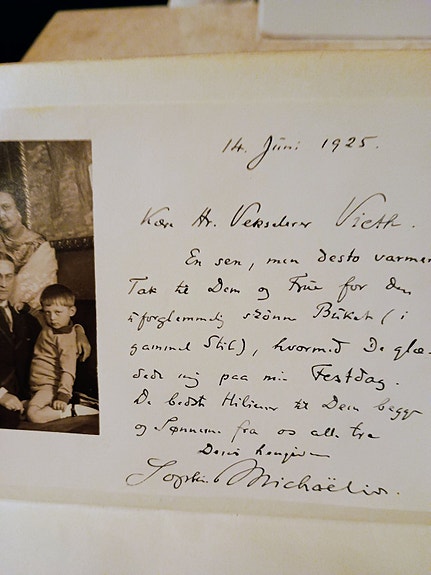 14. Juni 1925.
Kære Hr. Vekselerer Vieth.
En sen, men desto varmer
Tak til Dem og Frue for den
uforglemmelig skønne Buket (i
gammel Stil), hvormed De glæ-
dede mig paa min Festdag.
De bedste Hilsener til Dem begge
og Sønnerne fra os alle tre
Deres hengivne
Sophus Michaëlis.